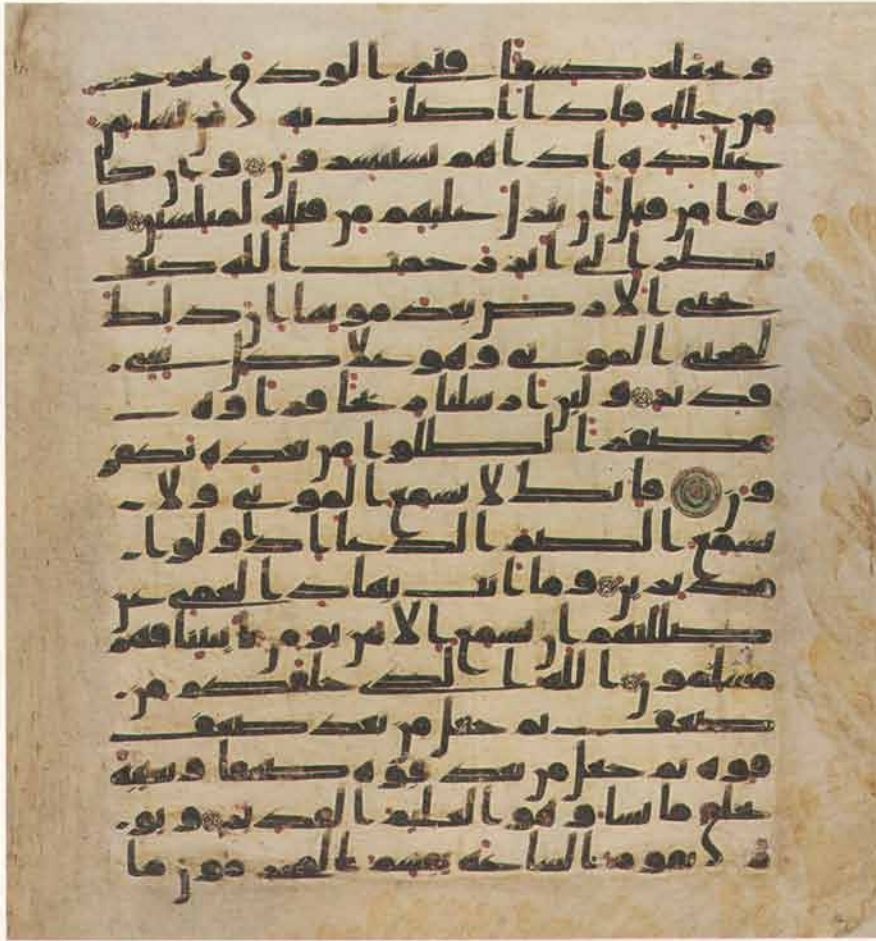 ويجعله كسفا فترى الودق يخرج
من خلله فاذا اصاب به من يشا من
عباده اذا هم يستبشرون وان كا
نوا من قبل ان ينزل عليهم من قبله لمبلسين فا
نظر الى اثر رحمت الله كيف
يحيي الارض بعد موتها ان ذلك
لمحي الموتى وهو على كل شي
قدير ولئن ارسلنا ريحا فراوه
مصفرا لظلوا من بعده يكفر
ون فانك لا تسمع الموتى ولا
تسمع الصم الدعا اذا ولوا
مدبرين وما انت بهاد العمي عن
ضللتهم ان تسمع الا من يومن بايتنا فهم
مسلمون الله الذي خلقكم من
ضعف ثم جعل من بعد ضعف
قوه ثم جعل من بعد قوه ضعفا وشيبه
يخلق ما يشا وهو العليم القدير ويو
م تقوم الساعه يقسم المجرمون ما